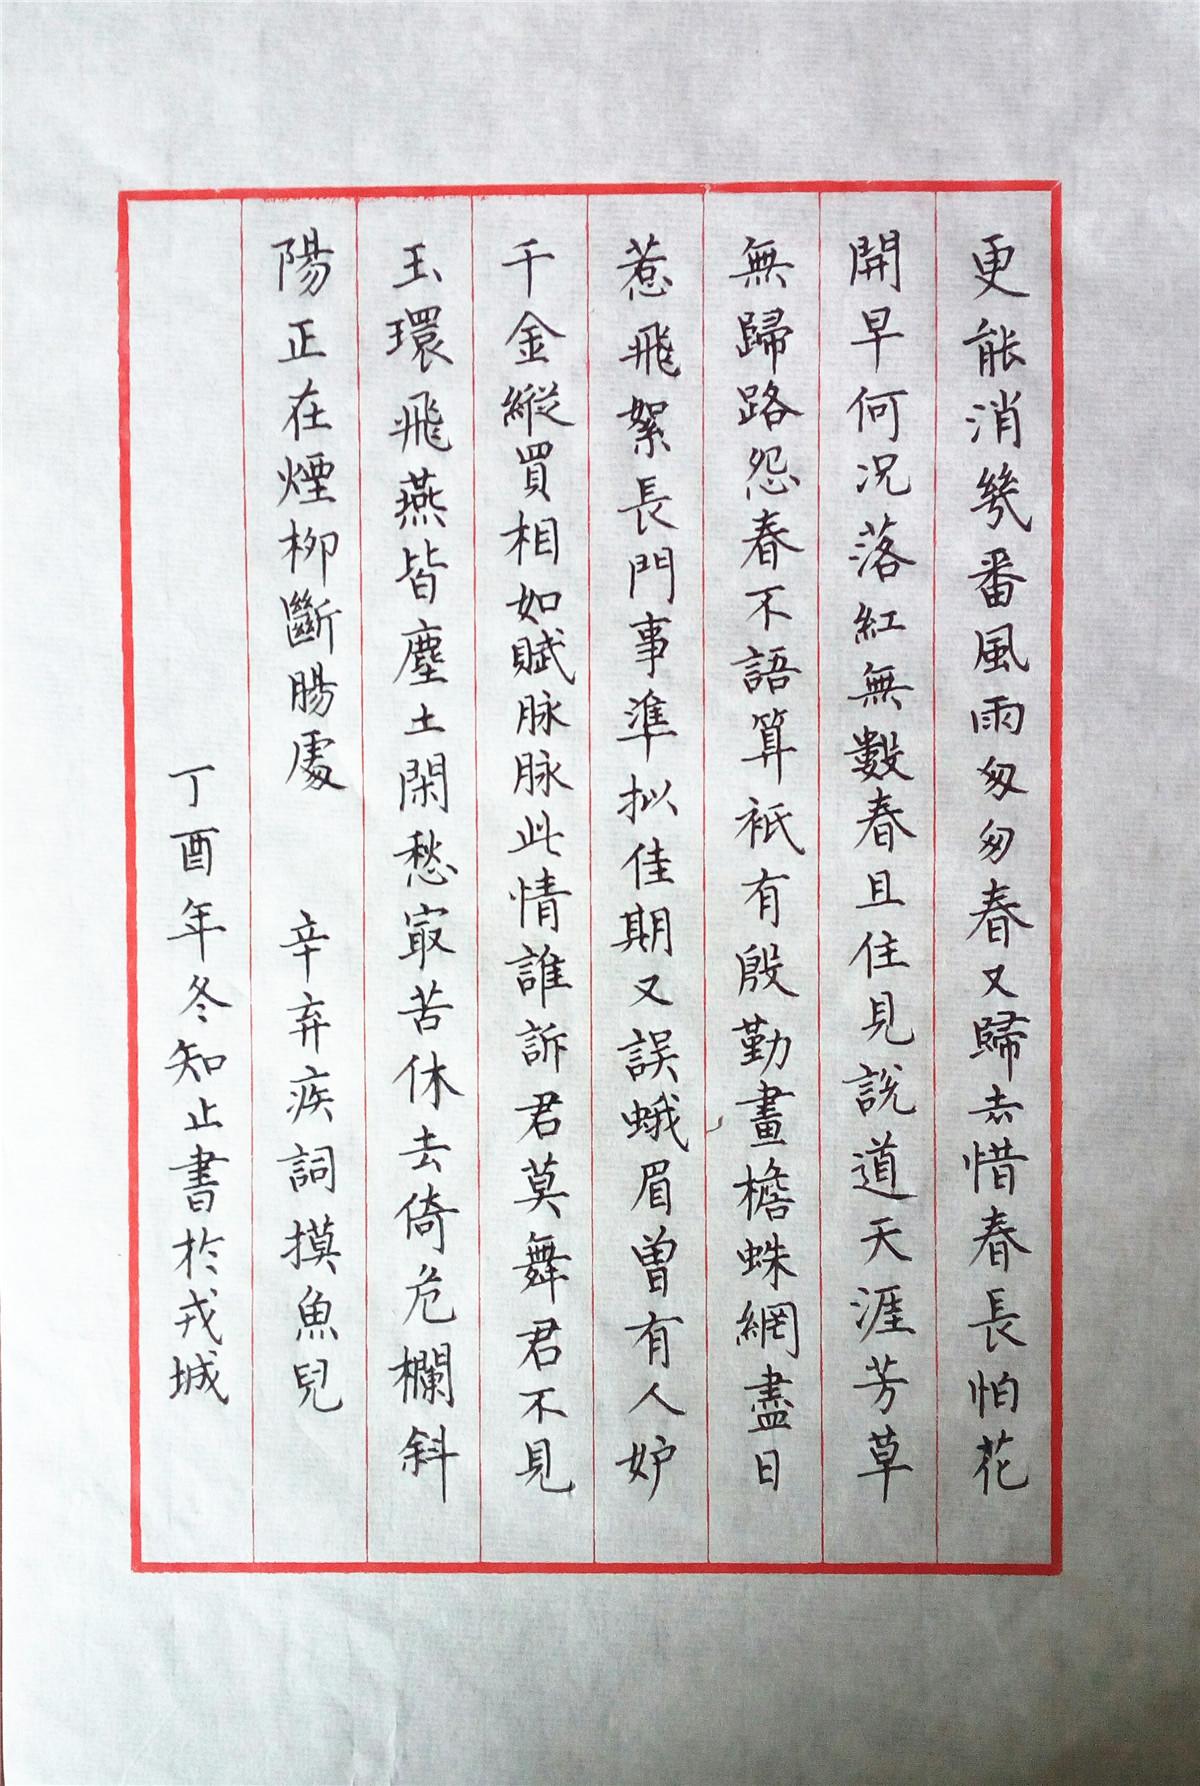 更能消幾番風雨匆匆春又歸去惜春長怕花
開早何况落紅無數春且住見說道天涯芳草
無歸路怨春不語算祇有殷勤畫檐蛛網盡日
惹飛絮長門事準拟佳期又誤蛾眉曾有人妒
千金縱買相如賦脉脉此情誰訴君莫舞君不見
玉環飛燕皆塵土閑愁寂苦休去倚危欄斜
陽正在煙柳斷腸處 辛弃疾詞摸魚兒
丁酉年冬知止書於戎城